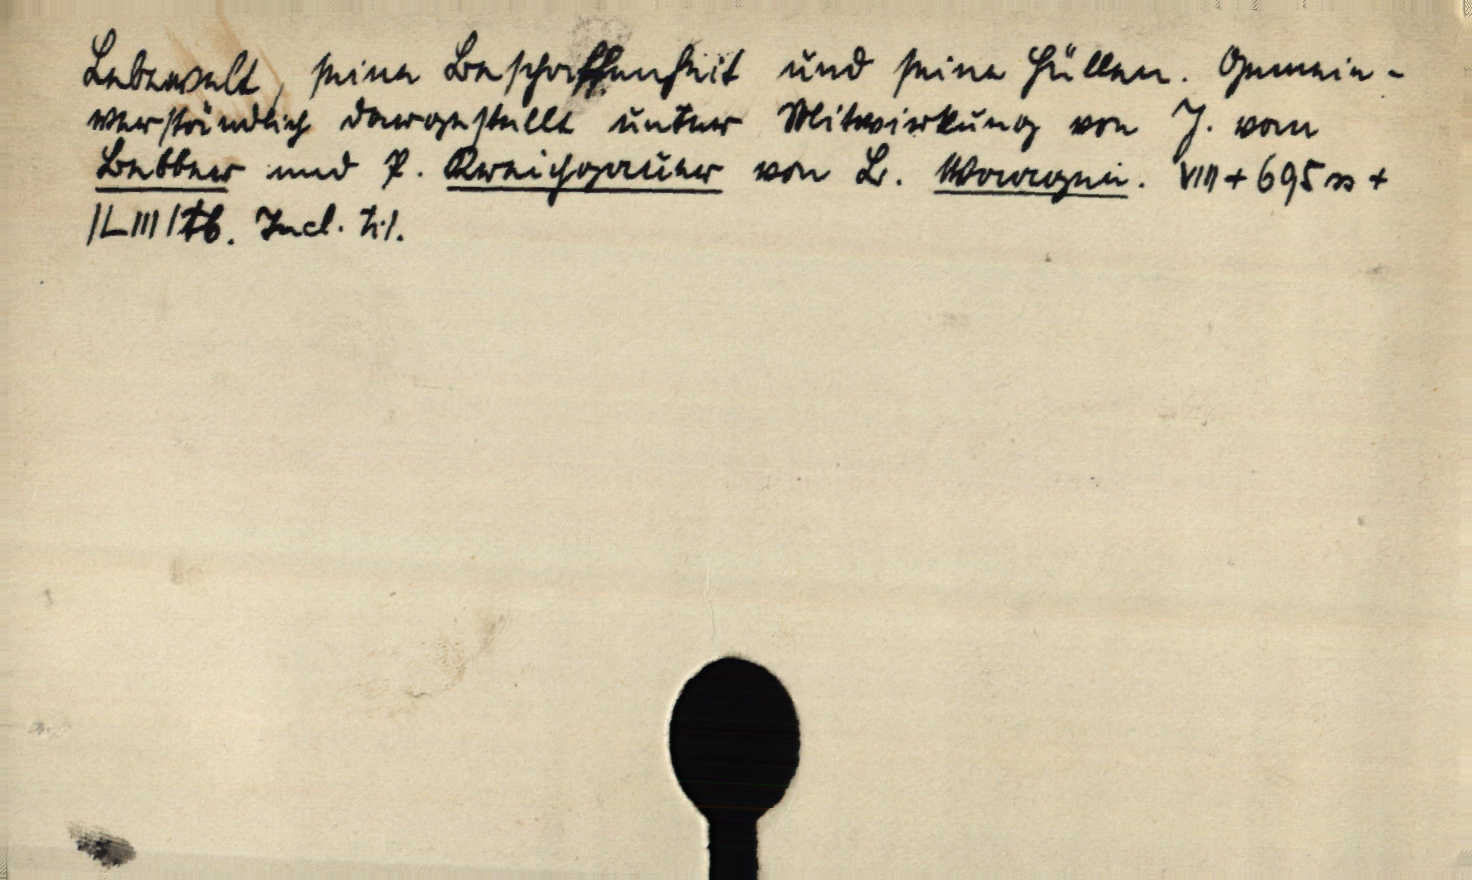 Lebewelt, seine Beschaffenheit und seine Hüllen. Gemein-
verständlich dargestellt unter Mitwirkung von J. van
Bebber und P. Kreichgauer von L. Waagen. VIII + 695 ss +
/LIII/ tb. Incl. til.